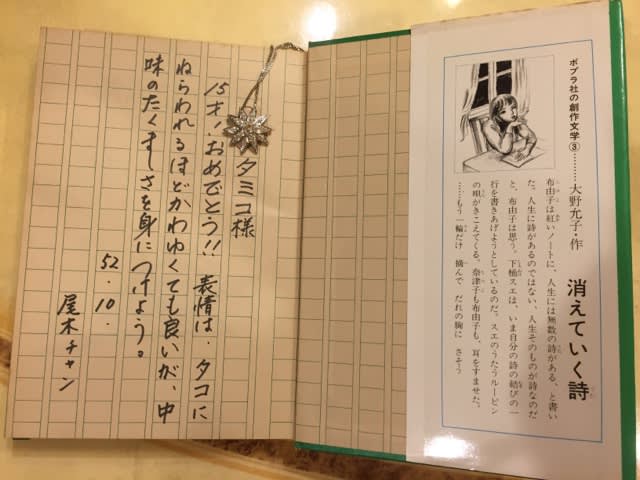 ポプラ社の創作文学③………大野允子・作
消えていく詩
うた
布由子は紅いノートに、人生には無数の詩がある、と書い
た。人生に詩があるのではない、人生そのものが詩なのだ
と、布由子は思う。下桶スエは、いま自分の詩の結びの一
行を書きあげようとしているのだ。スエのうたうルーピン
の唄がきこえてくる。奈津子も布由子も、耳をすませた。
……もう一輪だけ 摘んで だれの胸に さそう
タミコ様
15才!おめでとう!! 表情は、タコに
ねらわれるほどかわゆくても良いが、中
味のたくましさを身につけよう。
52.10.
尾木チャン